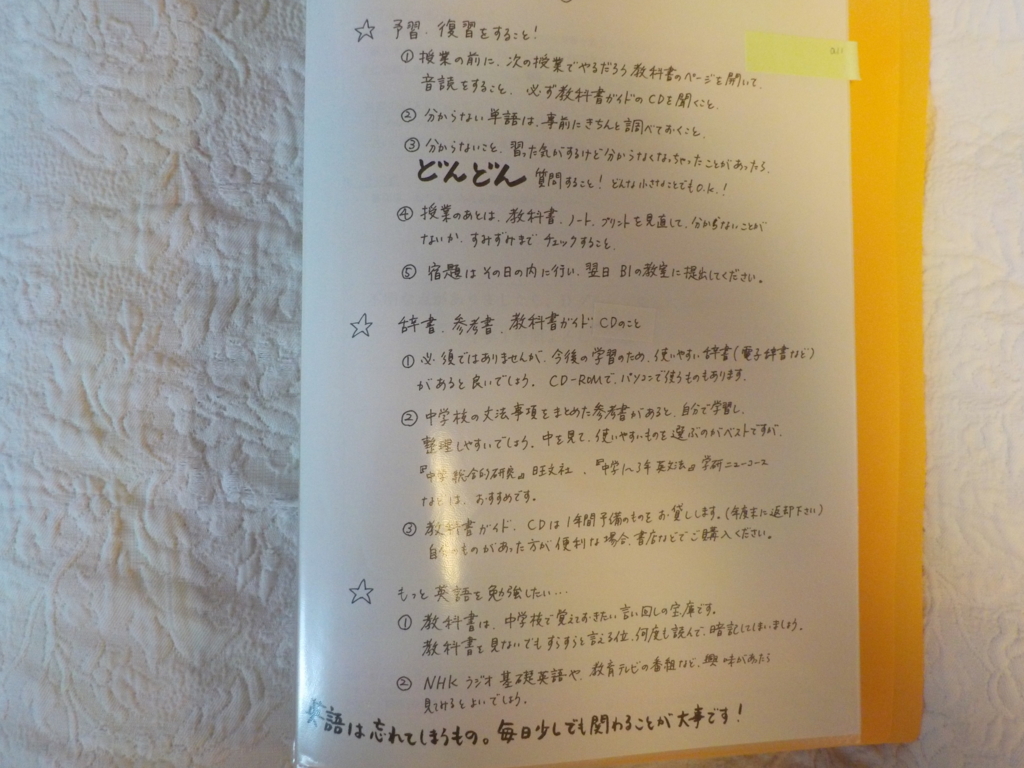 ☆ 予習、復習をすること！
① 授業の前に、次の授業でやるだろう教科書のページを開いて、
音読をすること、必ず教科書ガイドのCDを聞くこと。
② 分からない単語は、事前にきちんと調べておくこと。
③ 分からないこと、習った気がするけど分からなくなっちゃったことがあったら、
どんどん 質問すること！ どんな小さなことでもO.K.！
④ 授業のあとは、教科書、ノート、プリントを見直して、分からないことが
ないか、すみずみまで チェックすること、
⑤ 宿題はその日の内に行い、翌日 B1の教室に提出してください。
☆ 辞書、参考書、教科書ガイド、CDのこと
① 必須ではありませんが、今後の学習のため、使いやすい辞書（電子辞書など）
があると良いでしょう。 CD-ROMで、パソコンで使うものもあります。
② 中学校の文法事項をまとめた参考書があると、自分で学習し、
整理しやすいでしょう。中を見て、使いやすいものを選ぶのがベストですが、
『中学 総合的研究』旺文社 、『中学1〜3年 英文法』学研ニューコース
などは、おすすめです。
③ 教科書ガイド、CDは1年間予備のものをお貸しします。（年度末に返却下さい）
自分のものがあった方が便利な場合、書店などでご購入ください。
☆ もっと 英語を勉強したい…
① 教科書は、中学校で覚えておきたい言い回しの宝庫です。
教科書を見ないでもすらすらと言える位、何度も読んで、暗記してしまいましょう。
② NHK ラジオ 基礎英語や、教育テレビの番組など、興味があったら
見てみるとよいでしょう。
英語は忘れてしまうもの。毎日少しでも関わることが大事です！